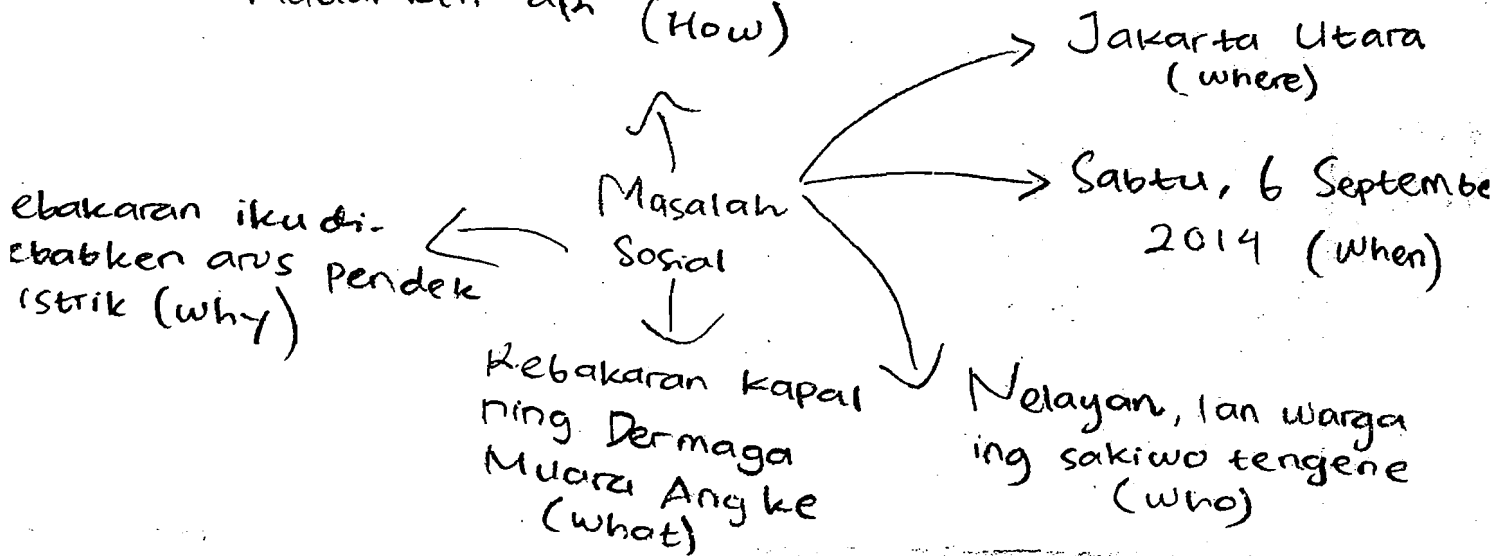 (How)
Jakarta Utara
(where)
Sabtu, 6 Septembe
2014 (when)
Masalah
Sosial
ebakaran iku di-
ebabken arus pendek
istrik (why)
Kebakaran kapal
ning Dermaga
Muara Angke
(what)
Nelayan, lan warga
ing sakiwo tengene
(who)